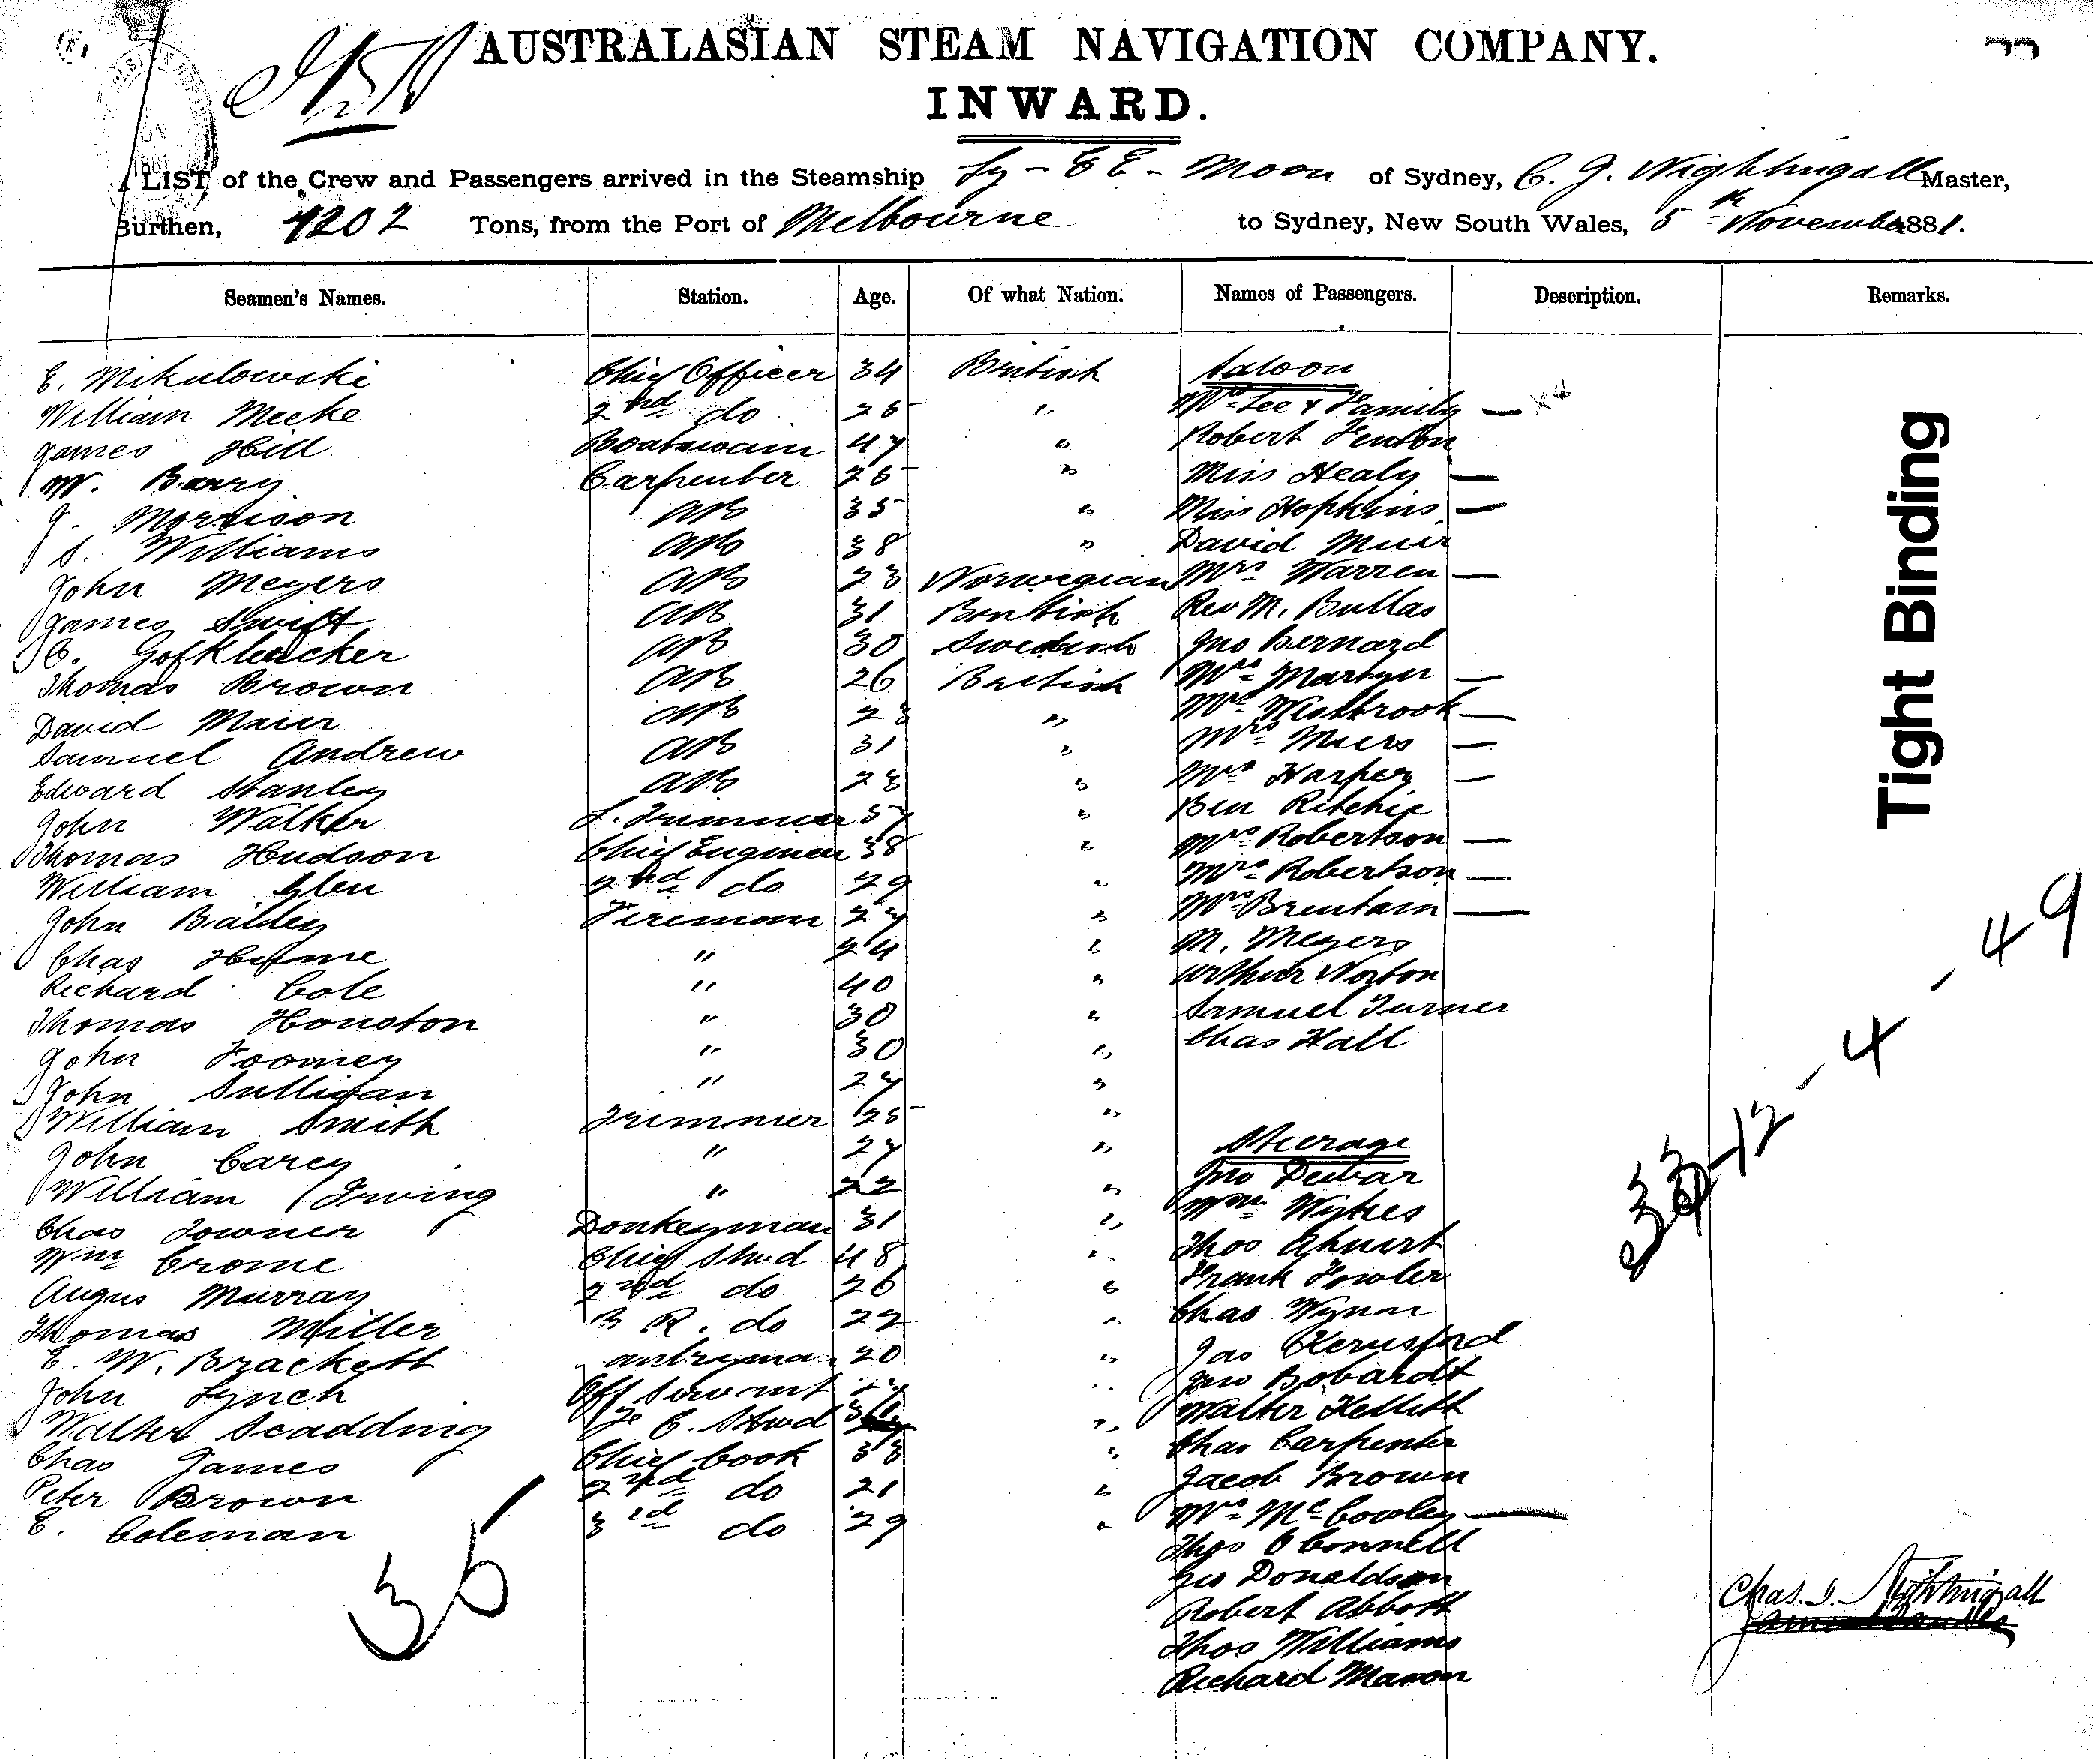 AUSTRALASIAN STEAM NAVIGATION COMPANY.
INWARD.
LIST of the Crew and Passengers arrived in the Steamship Ly-EE-Moon of Sydney, C. J. Nightingall Master,
Burthen, 1202 Tons, from the Port of Melbourne to Sydney, New South Wales, 5th November 1881.
Seamen's Names. Station. Age. Of what Nation. Names of Passengers. Description. Remarks.
E. Mikulowski Chief Officer 34 British Saloon
William Meeke 2nd do 25 " Mrs Lee & Family —
James Hill Boatswain 47 " Robert Fenton
W. Barry Carpenter 25 " Miss Healy —
J. Morrison AB 35 " Miss Hopkins —
S. Williams AB 38 " David Muir
John Meyers AB 23 Norwegian Mrs Warren —
James Swift AB 31 British Rev M. Bullas
C. AB 30 Swedish Jno Bernard
Thomas Brown AB 26 British Mrs Martyn —
David Maier AB 23 " Mrs Westbrook —
Samuel Andrew AB 31 " Mrs Miers —
Edward Stanley AB 28 " Mrs Harper —
John Walker L. Trimmer 37 " Ben Ritchie
Thomas Hudson Chief Engineer 38 " Mrs Robertson —
William Glen 2nd do 29 " Mrs Robertson —
John Bailey Fireman 27 " Mrs Brentain —
Chas Hulme " 24 " M. Meyers
Richard Cole " 40 " Arthur Norton
Thomas Houston " 30 " Samuel Turner
John Toomey " 30 " Chas Hall
John Sullivan " 27 "
William Smith Trimmer 25 "
John Carey " 27 " Steerage
William Irving " 22 " Jno Dewar
Chas Towner Donkeyman 31 " Wm Wykes
Wm Crome Chief Stwd 48 " Thos
Angus Murray 2nd do 26 " Frank Fowler
Thomas Miller B R. do 22 " Chas Wynn
E. W. Brackett Pantryman 20 " Jas
John Lynch Off Servant " Jno Bobardt
Walter Scadding F. C. Stwd " Walter Kellett
Chas James Chief Cook 33 " Chas Carpenter
Peter Brown 2nd do 21 " Jacob Brown
E. Coleman 3rd do 29 " Mrs McCowley —
Thos O'Connell
Geo Donaldson
Robert Abbott
Thos Williams
Richard Mason
35
12 - 4 - 49
Tight Binding
Chas. J. Nightingall